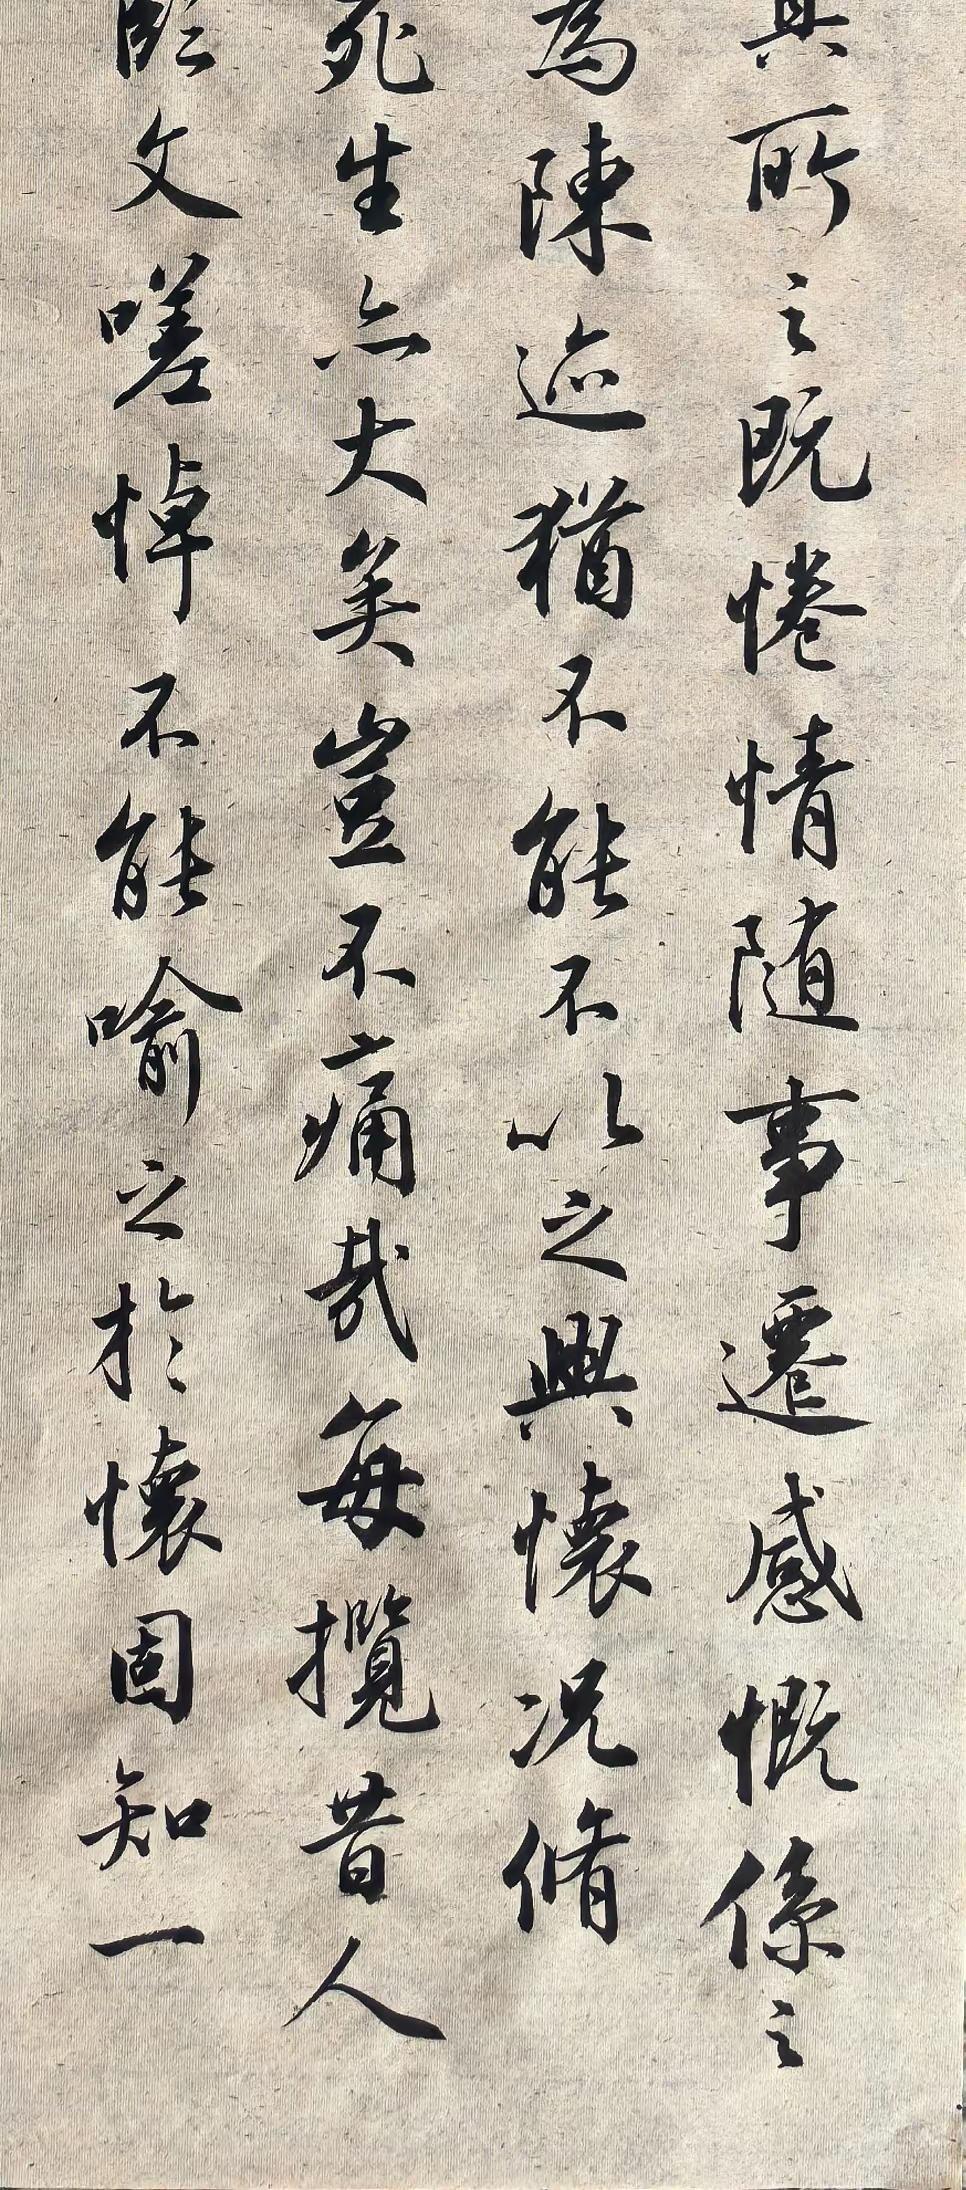 其所之既惓情随事遷感慨係之
為陳迹猶不能不以之興懷况脩
死生亦大矣豈不痛哉每攬昔人
臨文嗟悼不能喻之於懷固知一